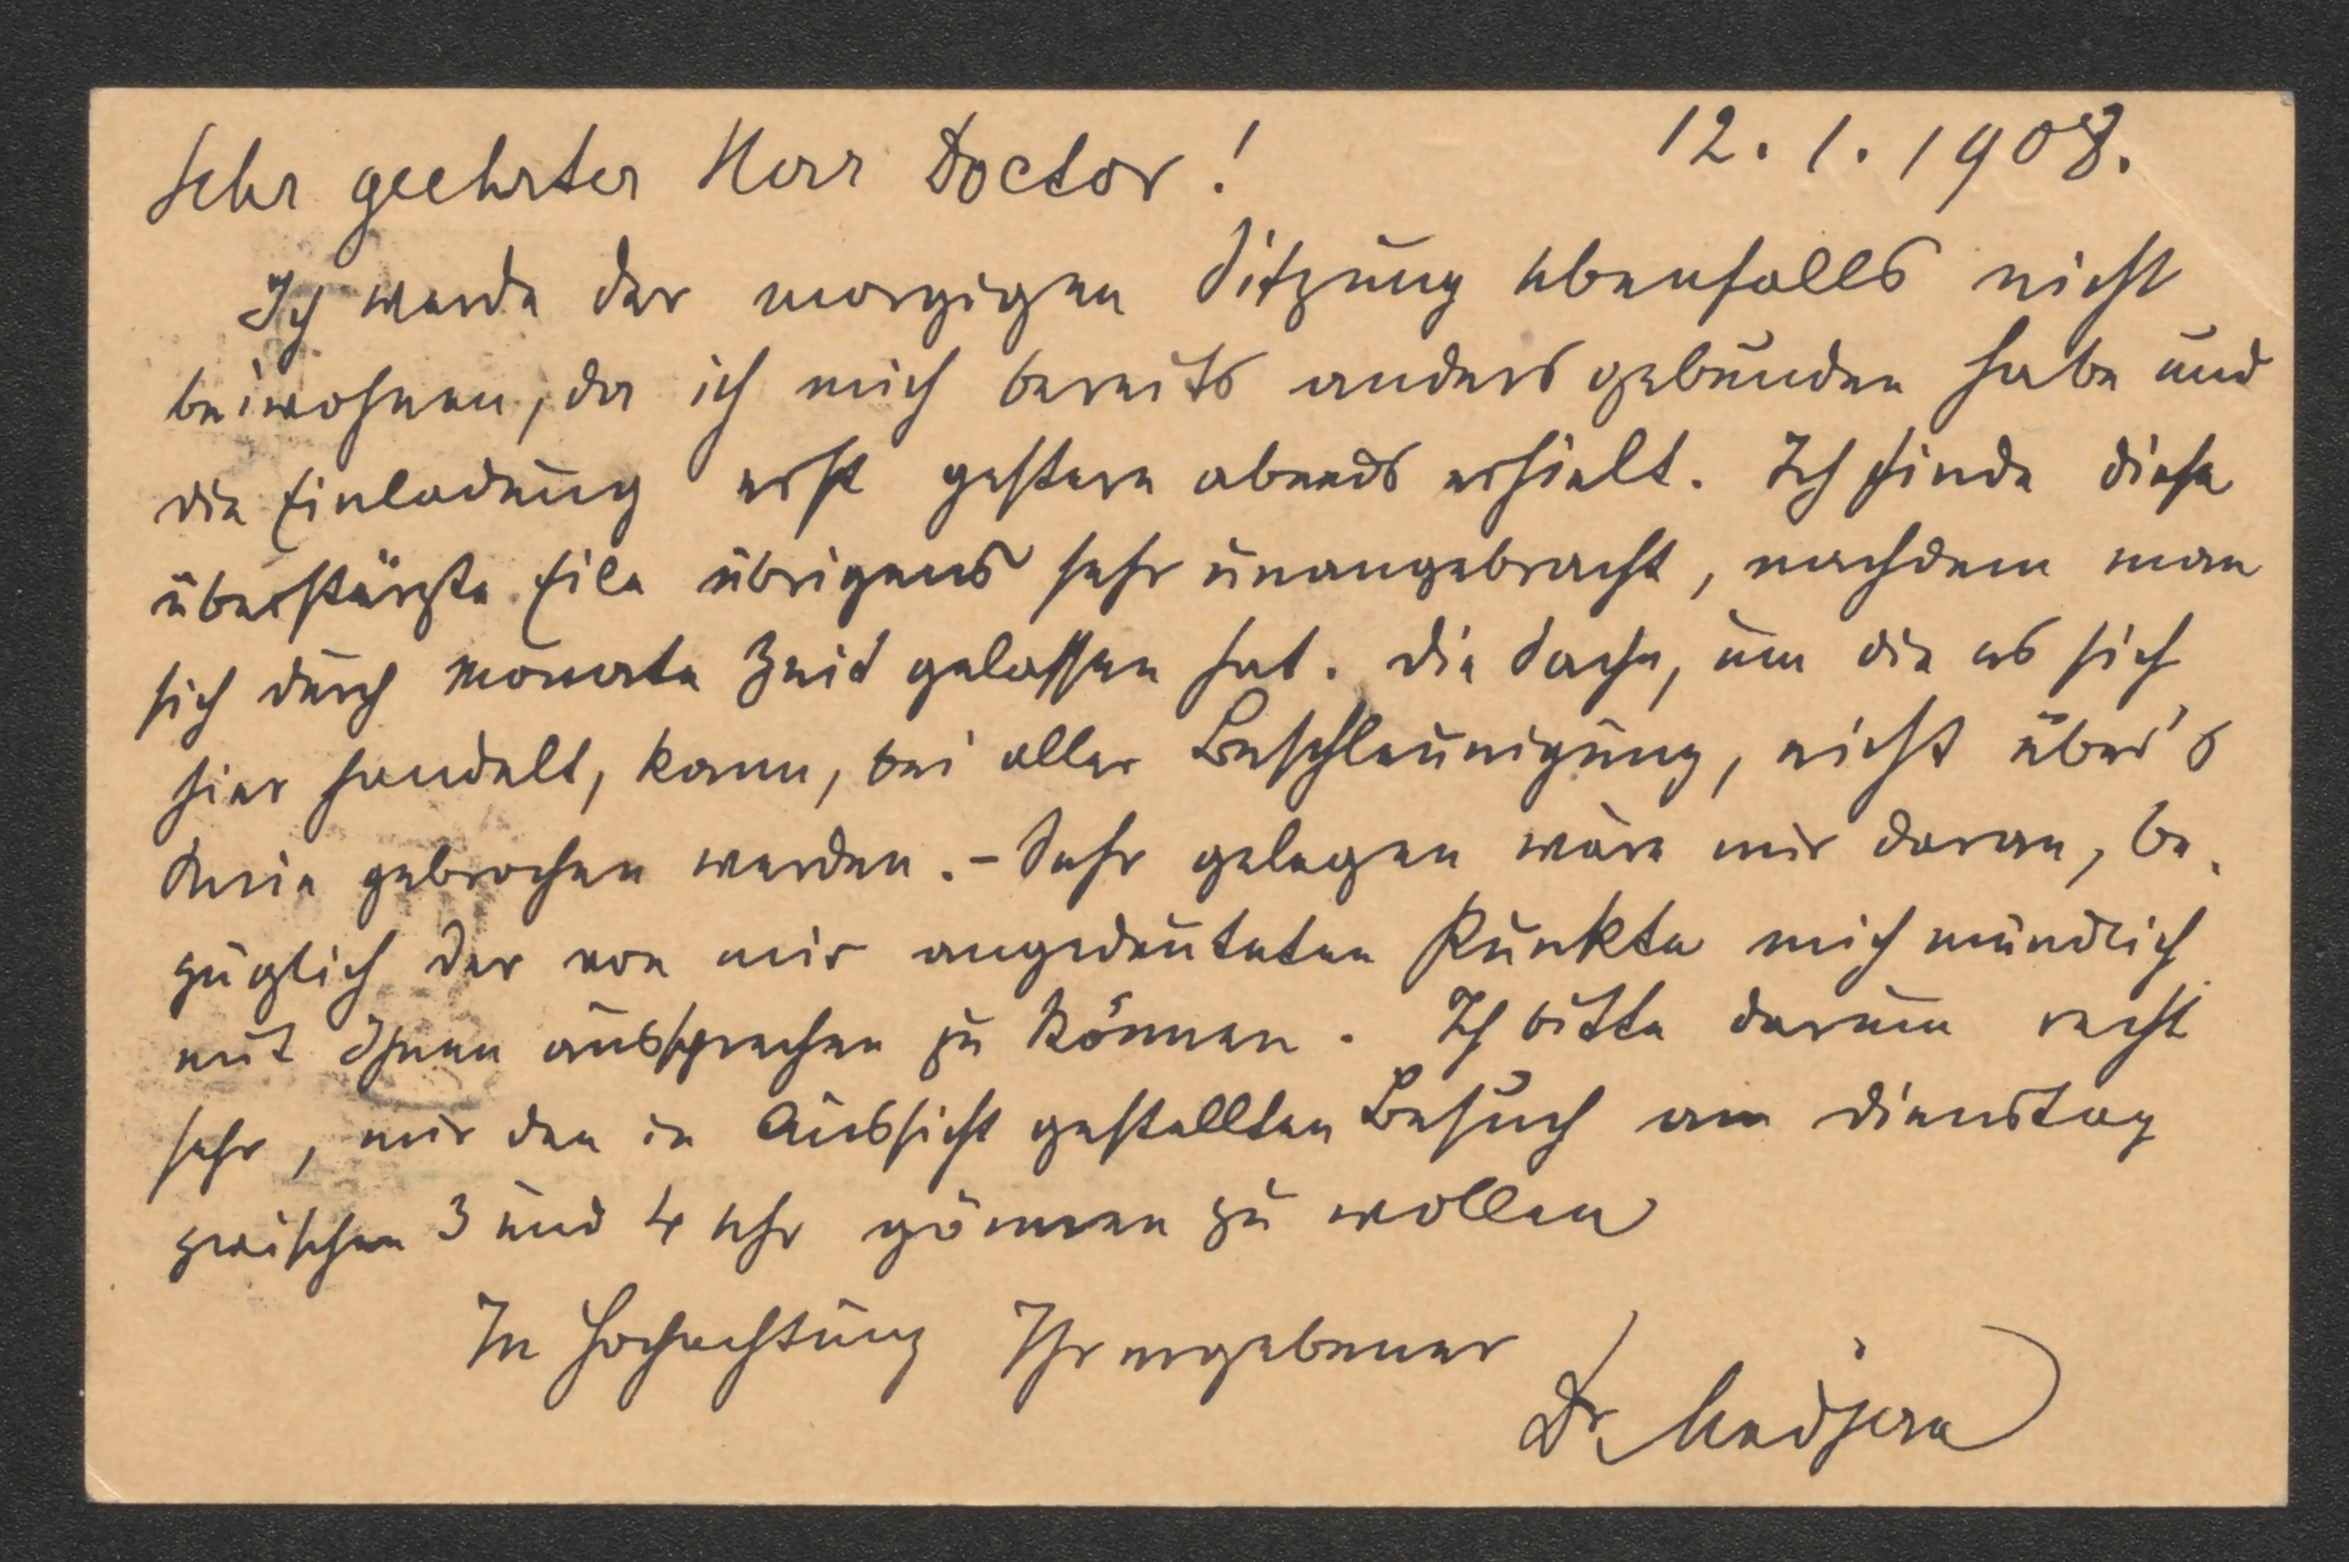 12. 1. 1908.
Sehr geehrter Herr Doctor!
Ich werde der morgigen Sitzung ebenfalls nicht
beiwohnen, da ich mich bereits anders gebunden habe und
die Einladung erst gestern abends erhielt. Ich finde diese
überstürzte Eile übrigens sehr unangebracht, nachdem man
sich durch Monate Zeit gelassen hat. Die Sache, um die es sich
hier handelt, kann, bei aller Beschleunigung, nicht über's
Knie gebrochen werden. - Sehr gelegen wäre mir daran, be-
züglich der von mir angedeuteten Punkte mich mündlich
mit Ihnen aussprechen zu können. Ich bitte darum recht
sehr, mir den in Aussicht gestellten Besuch am Dienstag
zwischen 3 und 4 Uhr gönnen zu wollen
In Hochachtung Ihr ergebener
Dr. Madjera